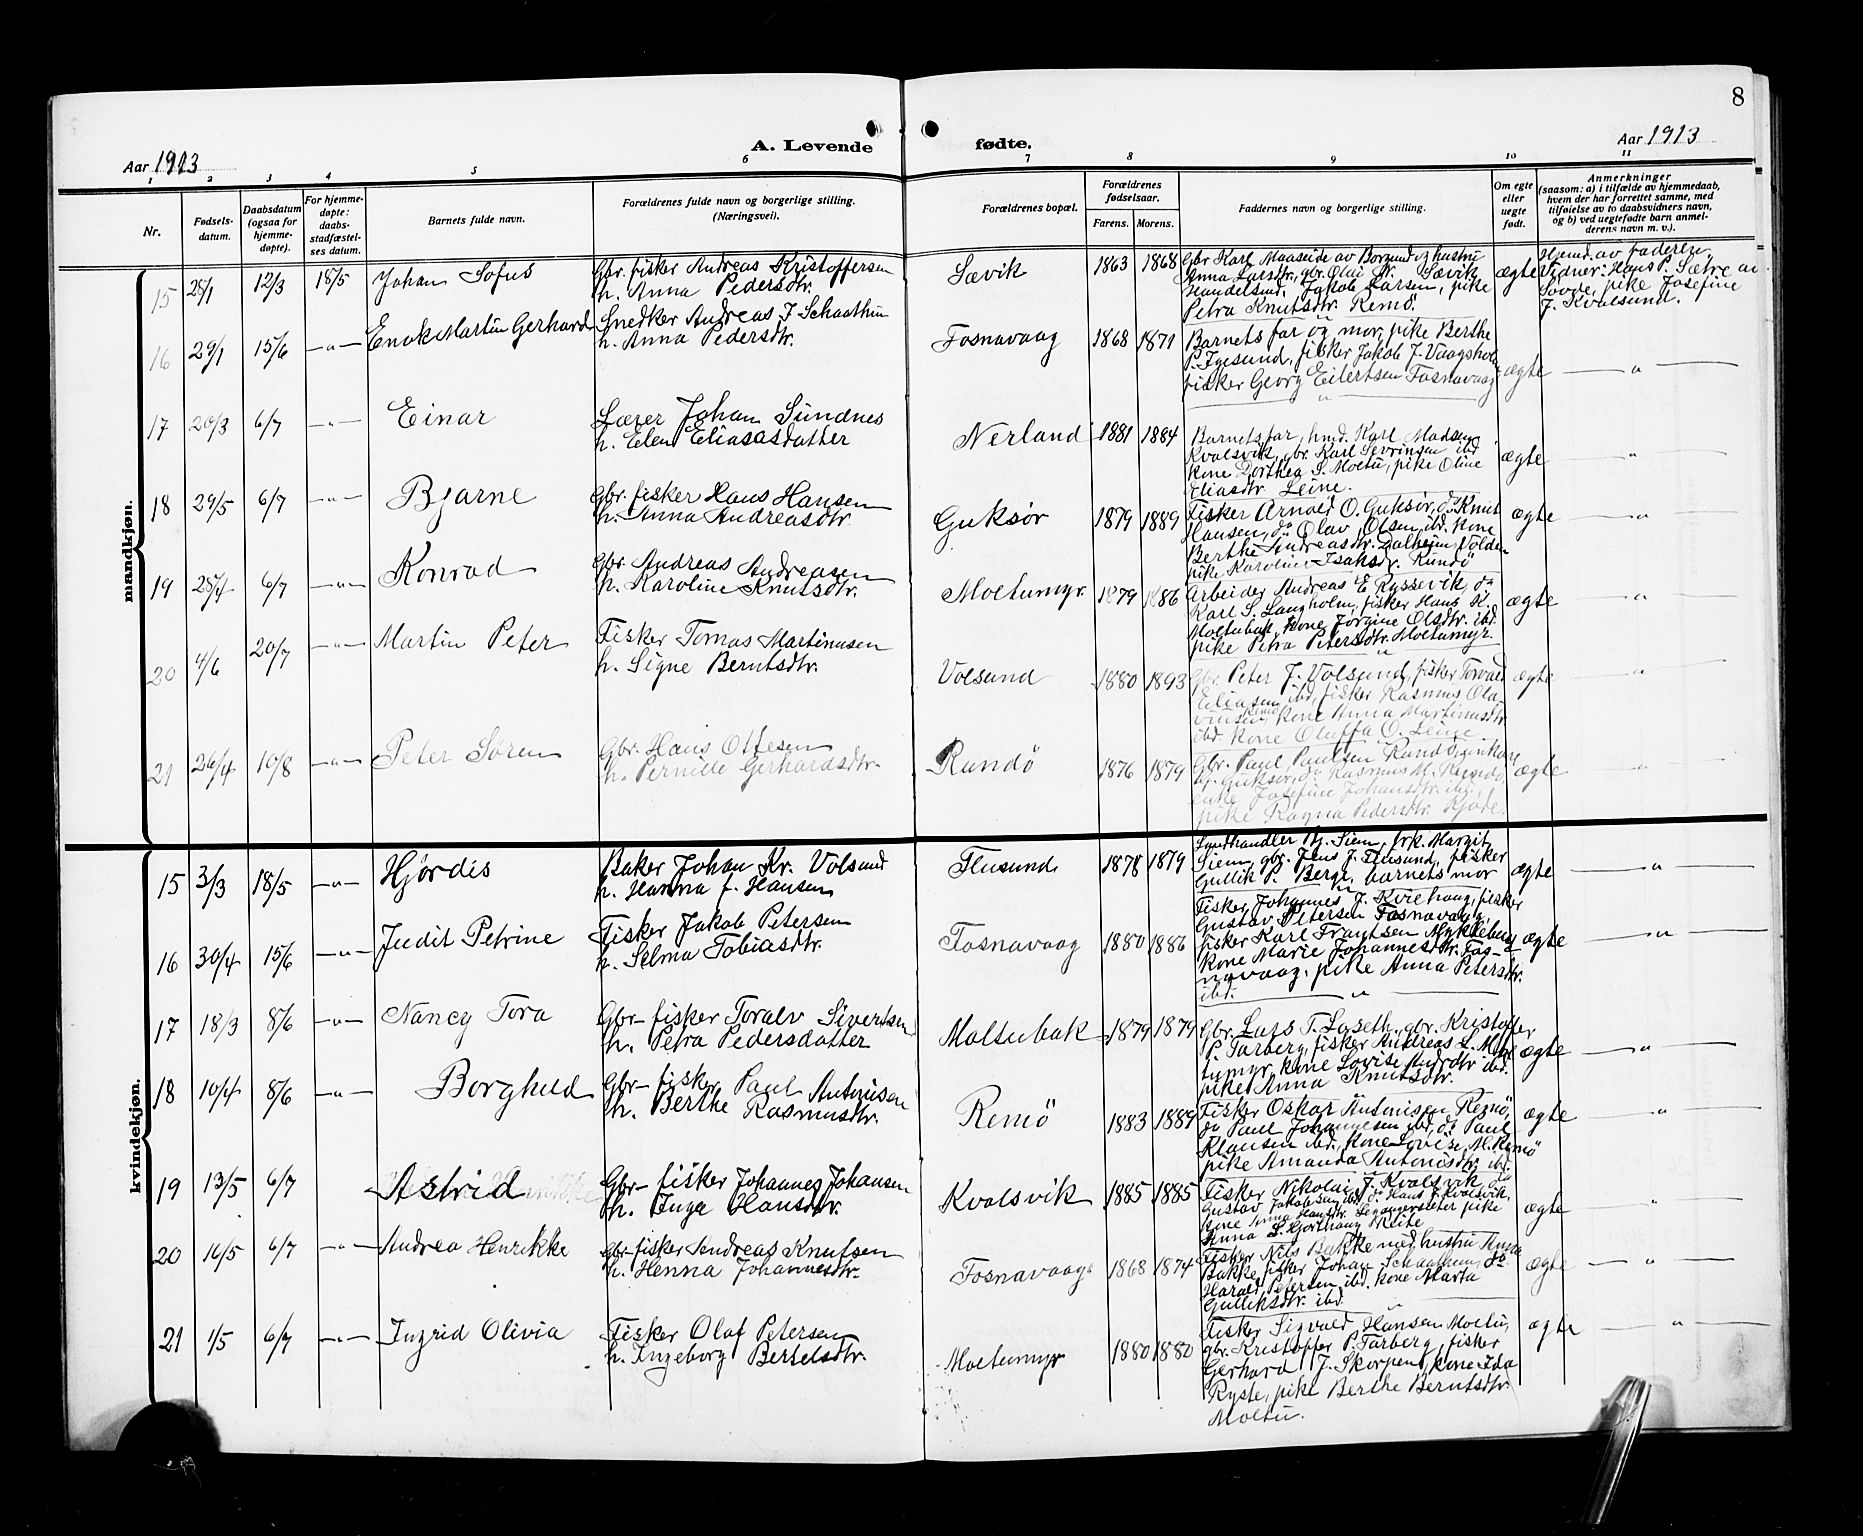 8
Aar 1913
A. Levende fødte.
Aar 1913
1 2 3 4 5 6 7 8 9 10 11
Nr.
Fødsels-
datum.
Daabsdatum
(ogsaa for
hjemme-
døpte).
For hjemme-
døpte:
daabs-
stadfæstel-
ses datum.
Barnets fulde navn.
Forældrenes fulde navn og borgerlige stilling.
(Næringsvei).
Forældrenes bopæl.
Forældrenes
fødselsaar.
Farens. Morens.
Faddernes navn og borgerlige stilling.
Om egte
eller
uegte
født.
Anmerkninger
(saasom: a) i tilfælde av hjemmedaab,
hvem der har forrettet samme, med
tilføielse av to daabsvidners navn,
og b) ved uegtefødte barn anmel-
derens navn m. v.).
mandkjøn.
15 28/1 12/3 18/5 Johan Sofus
Gbr. fisker Andreas Kristoffersen
h. Anna Pedersdtr.
Sævik 1863 1868
Gbr Karl Maaseide av Borgund og hustru
Anna Larsdtr, gbr. Olai Sævik
Handelsmd. Jakob Larsen, pike
Petra Knutsdtr. Remö
ægte
Hjemd. av faderen
Vidner: Hans P. Sætre av
Sovde, pike Josefine
J. Kvalsund.
16 29/1 15/6 -"- Enok Martin Gerhard
Snedker Andreas J Schaathun
h. Anna Pedersdtr.
Fosnavaag 1868 1871
Barnets far og mor, pike Berthe
P. Igesund, fisker Jakob J. Vaagsholm
fisker Georg Eilertsen Fosnavaag
ægte -"-
17 20/3 6/7 -"- Einar
Lærer Johan Sundnes
h. Elen Eliasasdatter
Nerland 1881 1884
Barnets far, hmd. Karl Madsen
Kvalsvik, gbr. Karl Sevrinsen ibd
kone Dorthea S. Moltu, pike Oline
Eliasdtr Leine.
ægte -"-
18 29/5 6/7 -"- Bjarne
Gbr. fisker Hans Hansen
h. Anna Andreasdtr.
Guksør 1879 1889
Fisker Arnold O. Guksør, do Knut
Hansen, do Olav Olsen, ibd. kone
Berthe Andreasdtr. Dalheim, Volden
pike Karoline Isaksdr. Rundö
ægte -"-
19 28/4 6/7 -"- Konrad
Gbr. Andreas Andreasen
h. Karoline Knutsdtr.
Moltumyr 1879 1886
Arbeider Andreas E Ryssevik, do
Karl S. Langholm, fisker Hans K.
Moltubak, kone Jorgine Olsdtr. ibd.
pike Petra Petersdtr. Moltumyr.
ægte -"-
20 4/6 20/7 -"- Martin Peter
Fisker Tomas Martinusen
h. Signe Berntsdtr.
Volsund 1880 1893
Gbr. Peter J. Volsund, fisker Torvald
Eliasen ibd, fisker Rasmus Ola-
vinsen Remö, kone Anna Martinusdtr.
ibd. kone Oluffa O. Leine
ægte -"-
21 26/4 10/8 -"- Peter Søren
Gbr. Hans Ottesen
h. Pernille Gerhardsdtr.
Rundö 1876 1879
Gbr. Paul Paulsen Rundö,
Guksør, do Rasmus M. Rundö,
enke Josefine Johansdtr. ibd
pike Ragna Pedersdtr.
ægte -"-
kvindekjøn.
15 3/3 18/5 -"- Hjørdis
Baker Johan Kr. Volsund
h. Hanna f. Hansen
Flusund 1878 1879
Landhandler Bj. Siem, frk. Margit
Siem, gbr. Jens J. Flusund, fisker
Gullik P. Berge, barnets mor
ægte -"-
16 30/4 15/6 -"- Judit Petrine
Fisker Jakob Petersen
h. Selma Tobiasdtr.
Fosnavaag 1880 1886
Fisker Johannes J. Kviehaug, fisker
Gustav Petersen Fosnavaag,
fisker Karl Frantsen Myklebust
kone Marie Johannesdtr. Fos-
navaag. pike Anna Petersdtr.
ibd.
ægte -"-
17 18/3 8/6 -"- Nancy Tora
Gbr- fisker Toralv Sivertsen
h. Petra Pedersdatter
Moltubak 1879 1879
Gbr. Lars T. Laseth, gbr. Kristoffer
P. Tarberg, fisker Andreas L. Mol-
tumyr, kone Lovise Andrdtr ibd.
pike Anna Knutsdtr.
ægte -"-
18 10/4 8/6 -"- Borghild
Gbr- fisker Paul Antonisen
h. Berthe Rasmusdtr.
Remö 1883 1889
Fisker Oskar Antonisen Remö,
do Paul Johannesen ibd, do Paul
Klausen ibd, kone Lovise M. Remö
pike Amanda Antonisdtr. ibd.
ægte -"-
19 13/5 6/7 Astrid
Gbr- fisker Johannes Johansen
h. Inga Hansdtr.
Kvalsvik 1885 1885
Fisker Nikolai J. Kvalsvik, do
Gustav Jakobsen ibd, do Hans J. Kvalsvik,
kone Anna Hansdtr. pike
Anna L. Gjorthaug Reite
ægte -"-
20 16/5 6/7 -"- Andrea Henrikke
Gbr-fisker Andreas Knutsen
h. Henna Johannesdtr.
Fosnavaag 1868 1874
Fisker Nils Bakke med hustru Anna
Bakke, fisker Johan Schaathun, do
Harald Petersen ibd. kone Marta
Gulliksdtr. ibd
ægte -"-
21 1/5 6/7 -"- Ingrid Olivia
Fisker Olaf Petersen
h. Ingeborg Bertelsdtr.
Moltumyr 1880 1880
Fisker Sigvald Hansen Moltu,
gbr. Kristoffer P. Tarberg, fisker
Gerhard J. Skorpen, kone Ida
Ryste, pike Berthe Berntsdtr.
Moltu.
ægte -"-